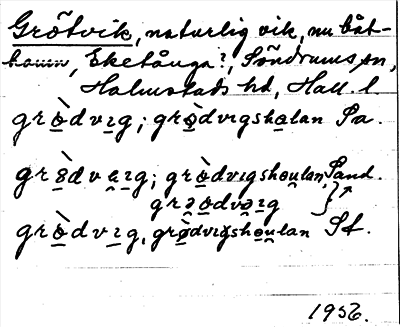 Grötvik, naturlig vik, nu båt-
hamn, Eketånga?, Söndrums sn,
Halmstads hd, Hall. l
grò̱dvı̱g; grò̱dvıgsha̱lan Sa.
grò̱dva̱ı̱g; grò̱dvıgsho̱u̱lan, Sand.
gra̱o̱dvə̱ı̱g
grò̱dvı̱g, grò̱dvı̱gsho̱u̱lan St.
1956.